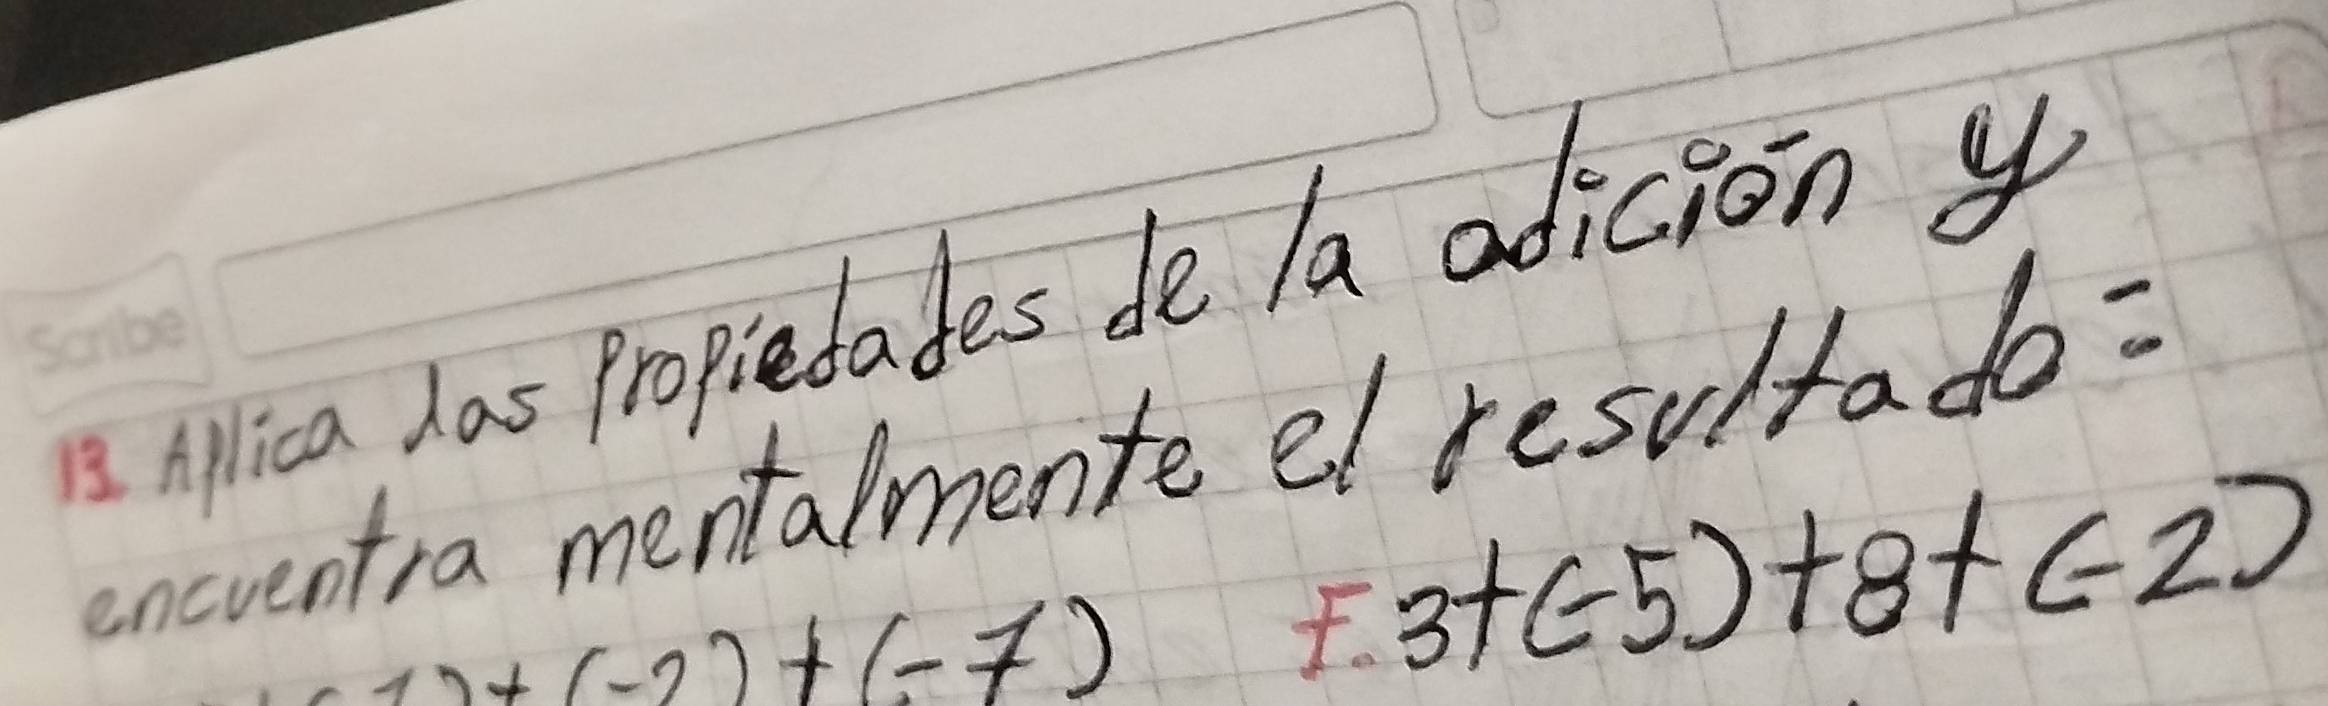 Scribe
13. Aplica las Propiedades de la adición y
encuentra mentalmente el resultado=
+(-7) F. 3+(-5)+8+(-2)